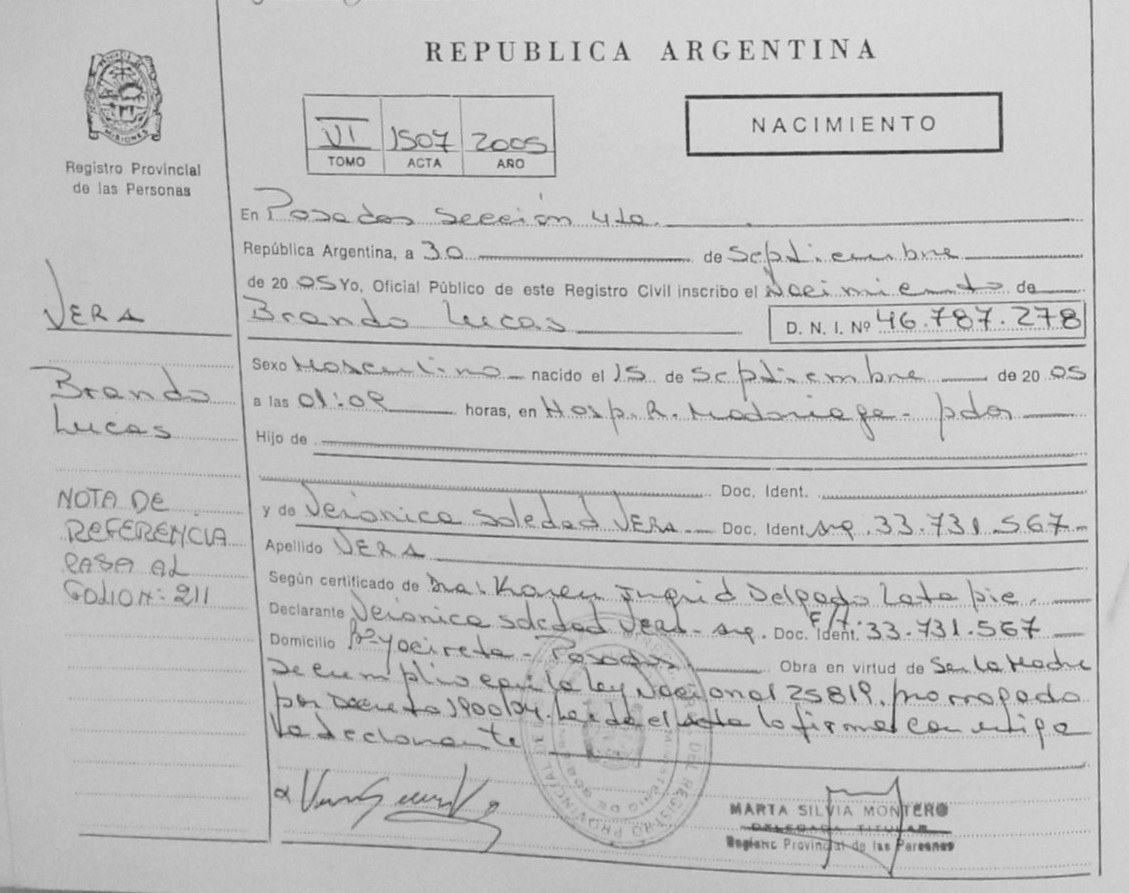 REPUBLICA ARGENTINA
NACIMIENTO
VI 1507 2005
TOMO ACTA AÑO
MISIONES
Registro Provincial
de las Personas
VERA
Brando
Lucas
NOTA DE
REFERENCIA
PASA AL
FOLIO Nº: 211
En Posadas Sección 4ta.
República Argentina, a 30 de Septiembre
de 2005 Yo, Oficial Público de este Registro Civil inscribo el Nacimiento de
Brando Lucas D. N. I. Nº 46.787.278
Sexo Masculino nacido el 15 de Septiembre de 2005
a las 01:09 horas, en Hosp. R. Madariaga - pdas
Hijo de
Doc. Ident.
y de Verónica Soledad VERA Doc. Ident. Arg. 33.731.567
Apellido VERA
Según certificado de Dra. Karen Ingrid Delgado
Declarante Verónica Soledad VERA - Arg. Doc. Ident. 33.731.567
Domicilio Bº Yacireta - Posadas. Obra en virtud de Ser la Madre
Se cumplio con la ley Nacional 25819, prorrogado
por Decreto 1900/04. Leida el acta la firma conmigo
la declarante
MARTA SILVIA MONTERO
DELEGADA TITULAR
Registro Provincial de las Personas